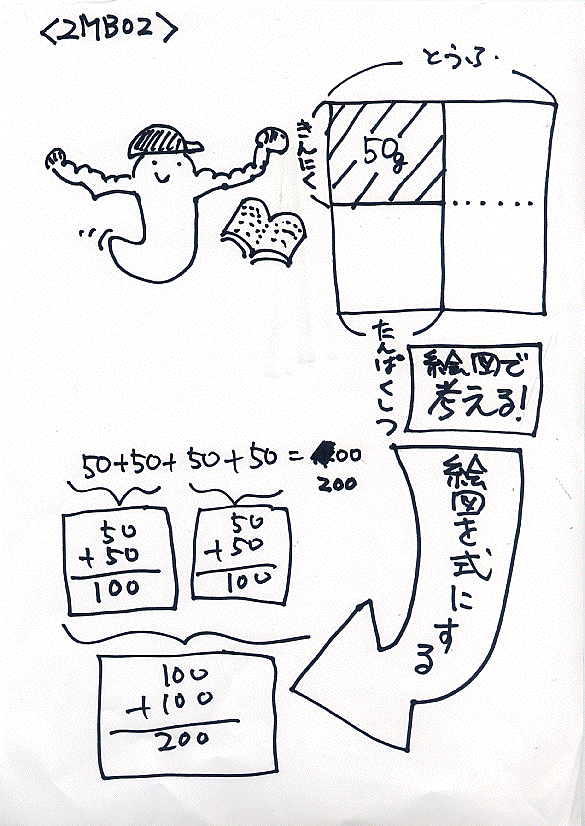 <2MB02>
とうふ
きんにく
50g
たんぱくしつ
絵図で
考える!
絵図を式にする
50+50+50+50=00
200
50
+50
100
50
+50
100
100
+100
200